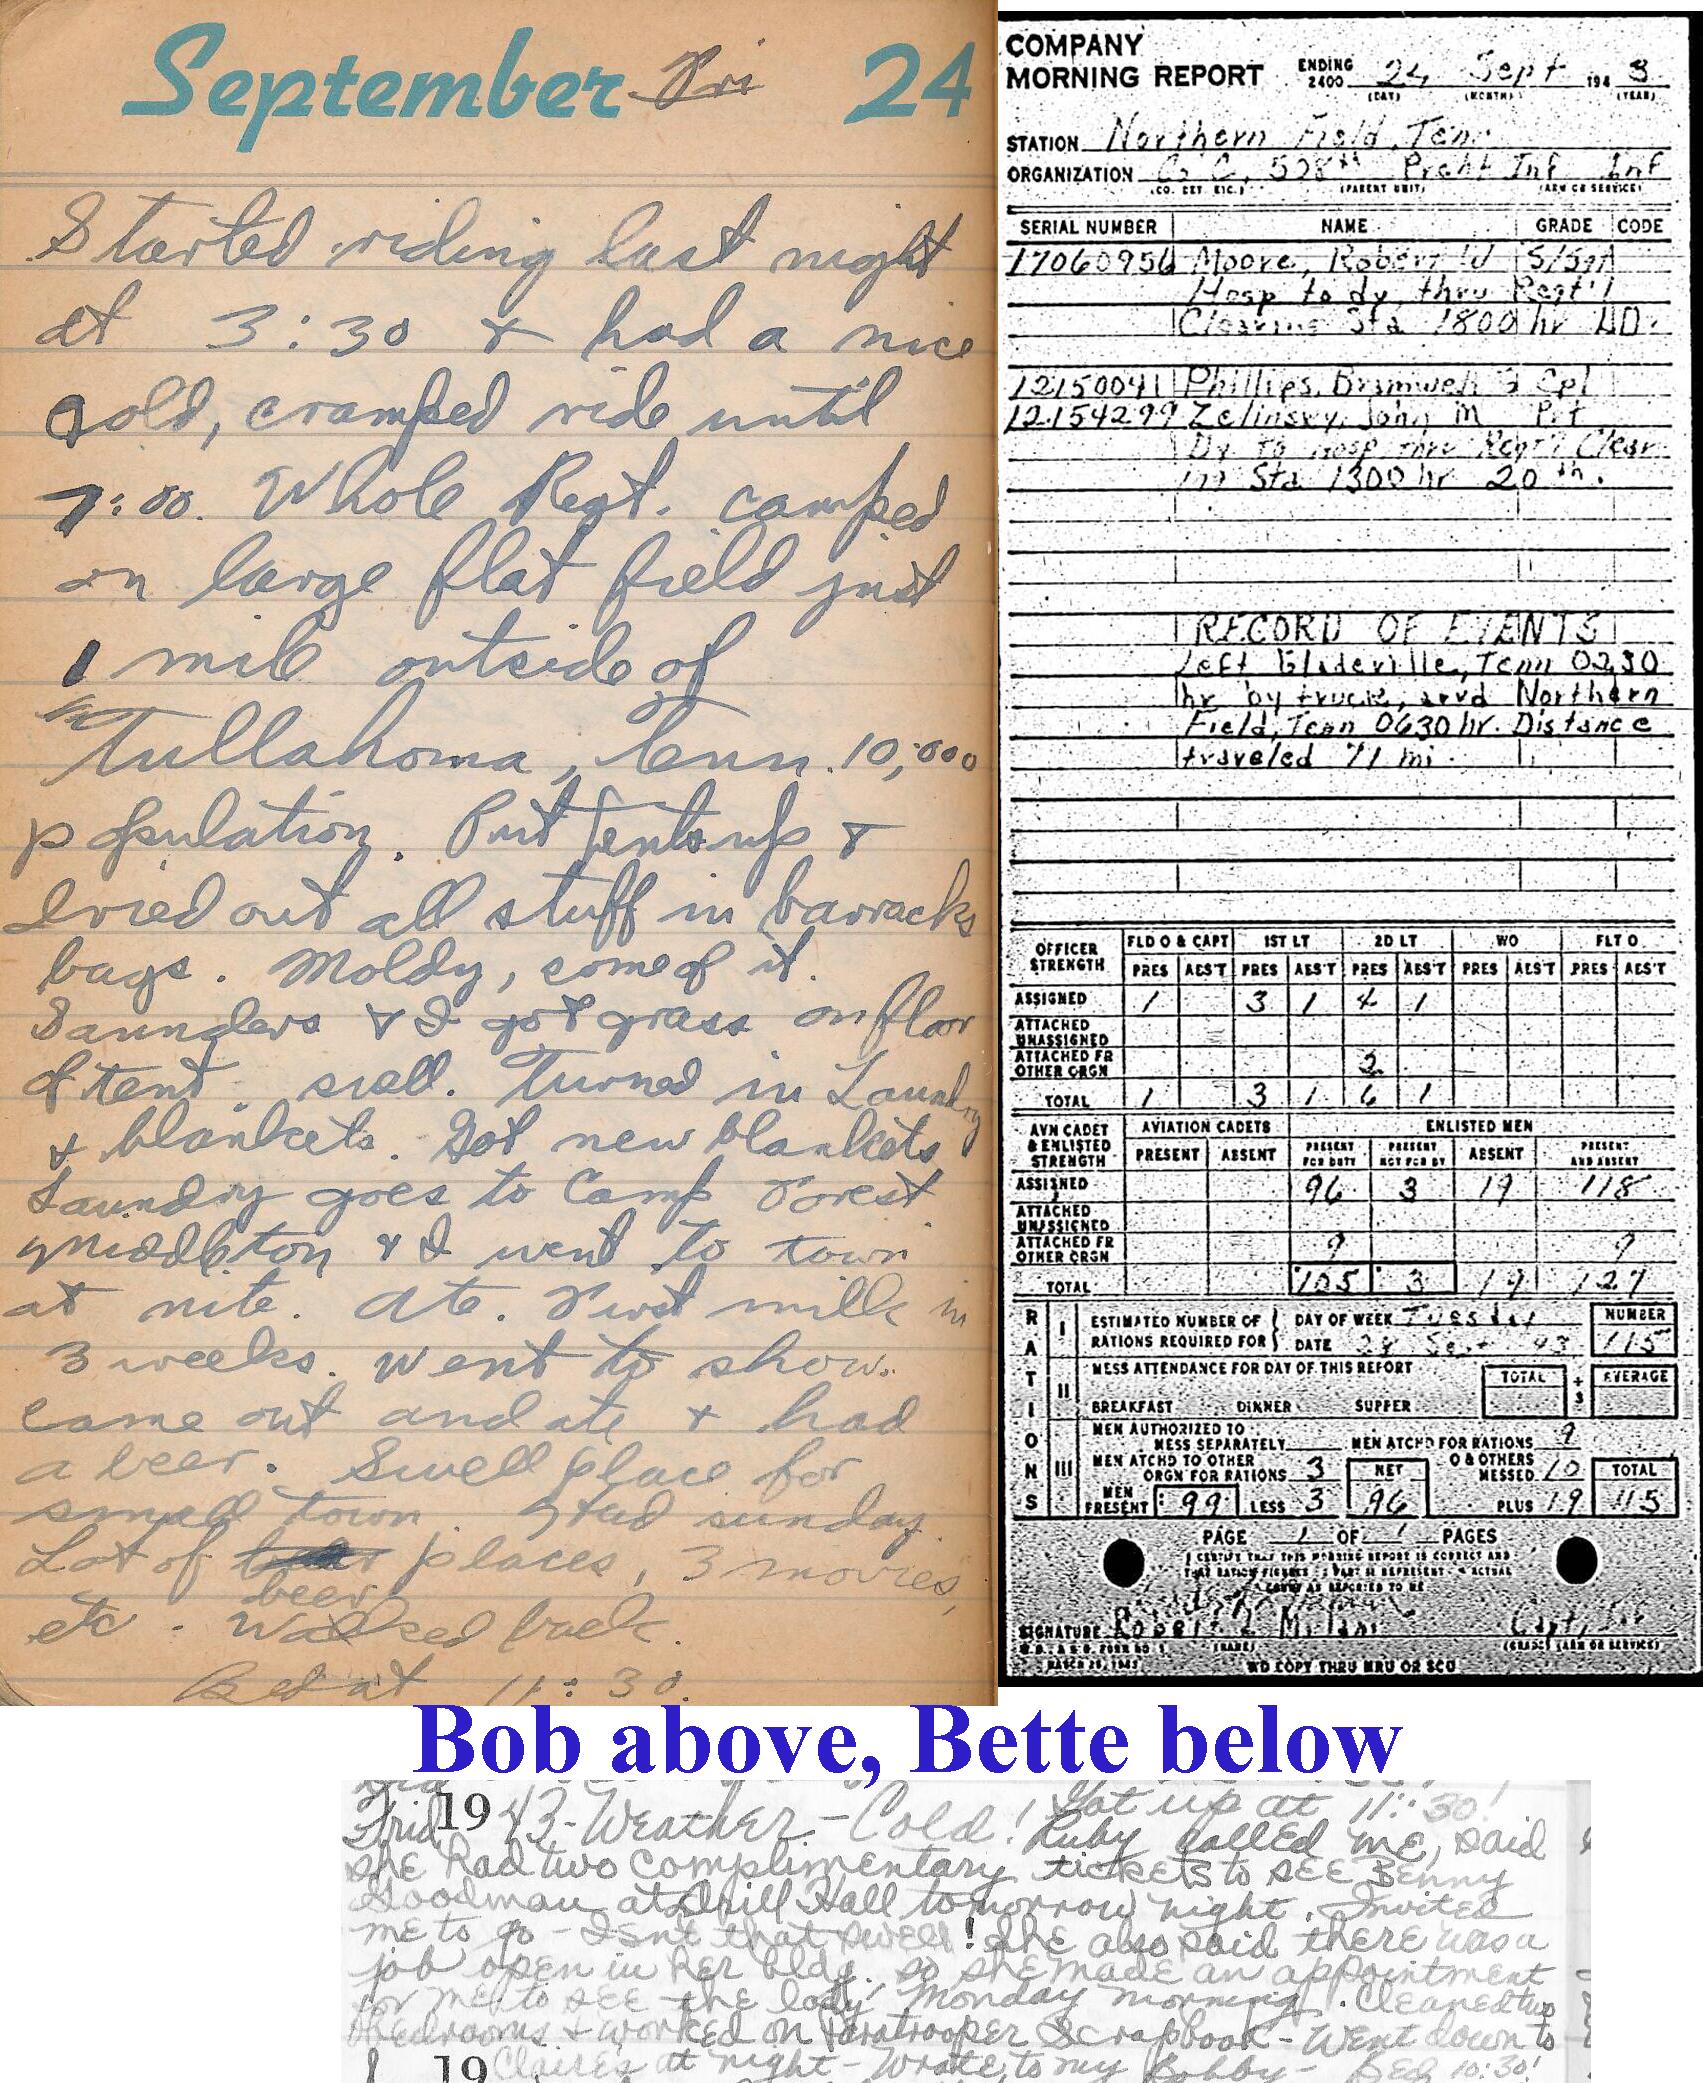 September Fri 24
Started riding last night
at 3:30 & had a nice
cold, cramped ride until
7:00. Whole Regt. camped
on large flat field just
1 mile outside of
Tullahoma, Tenn. 10,000
population. Put tents up &
dried out all stuff in barracks
bags. Moldy, some of it.
Saunders & I got grass on floor
of tent. swell. Turned in Laundry
& blankets. Got new blankets
Laundry goes to Camp Forest
Middleton & I went to town
at nite. Ate. First milk in
3 weeks. Went to show.
came out and ate & had
a beer. Swell place for
small town. Had sunday.
Lot of beer places, 3 movies,
etc. Walked back.
Bed at 11:30.
COMPANY
MORNING REPORT ENDING 2400 24 Sept 1943
(DAY) (MONTH) (YEAR)
STATION Northern Field, Tenn
ORGANIZATION Co C, 508th Pracht Inf Inf
(CO. DET. ETC.) (PARENT UNIT) (ARM OR SERVICE)
SERIAL NUMBER NAME GRADE CODE
17060956 Moore, Robert W S/Sgt
Hosp to dy thru Regt'l
Clearing Sta 1800 hr
12150091 Phillips, Bramwell Cpl
12154299 Zelinsky, John M Pvt
Dy to Hosp thru Regt'l Clear
ing Sta 1300 hr 20th.
RECORD OF EVENTS
Left Gladeville, Tenn 0230
hr by truck, arrd Northern
Field, Tenn 0630 hr. Distance
traveled 71 mi.
OFFICER STRENGTH FLD O & CAPT 1ST LT 2D LT WO FLT O
PRES ABS'T PRES ABS'T PRES ABS'T PRES ABS'T PRES ABS'T
ASSIGNED 1 3 1 4 1
ATTACHED UNASSIGNED
ATTACHED FR OTHER ORGN 2
TOTAL 1 3 1 6 1
AVN CADET & ENLISTED STRENGTH AVIATION CADETS ENLISTED MEN
PRESENT ABSENT PRESENT FOR DUTY PRESENT NOT FOR DY ABSENT PRESENT AND ABSENT
ASSIGNED 96 3 19 118
ATTACHED UNASSIGNED
ATTACHED FR OTHER ORGN 9 9
TOTAL 105 3 19 127
RATIONS
I ESTIMATED NUMBER OF DAY OF WEEK Tuesday NUMBER
RATIONS REQUIRED FOR DATE 28 Sept 43 115
II MESS ATTENDANCE FOR DAY OF THIS REPORT TOTAL ÷ 3 AVERAGE
BREAKFAST DINNER SUPPER
III MEN AUTHORIZED TO MESS SEPARATELY MEN ATCHD FOR RATIONS 9
MEN ATCHD TO OTHER ORGN FOR RATIONS 3 NET O & OTHERS MESSED 10 TOTAL
MEN PRESENT 99 LESS 3 96 PLUS 19 115
PAGE 1 OF 1 PAGES
I CERTIFY THAT THIS MORNING REPORT IS CORRECT AND
SIGNATURE Robert Capt, Inf
(NAME) (GRADE) (ARM OR SERVICE)
W.D., A.G.O. FORM NO. 1
MARCH 1943 WD COPY THRU MRU OR SCU
Bob above, Bette below
Frid. 1943 - Weather - Cold! Got up at 11:30!
Ruby called me, said
she had two complimentary tickets to see Benny
Goodman at Drill Hall tomorrow night. Invited
me to go - Isn't that swell! She also said there was a
job open in her bldg. so she made an appointment
for me to see the lady Monday morning. Cleaned two
bedrooms & worked on Paratrooper Scrapbook - Went down to
19 Claire's at night - Wrote to my Bobby - Bed 10:30!